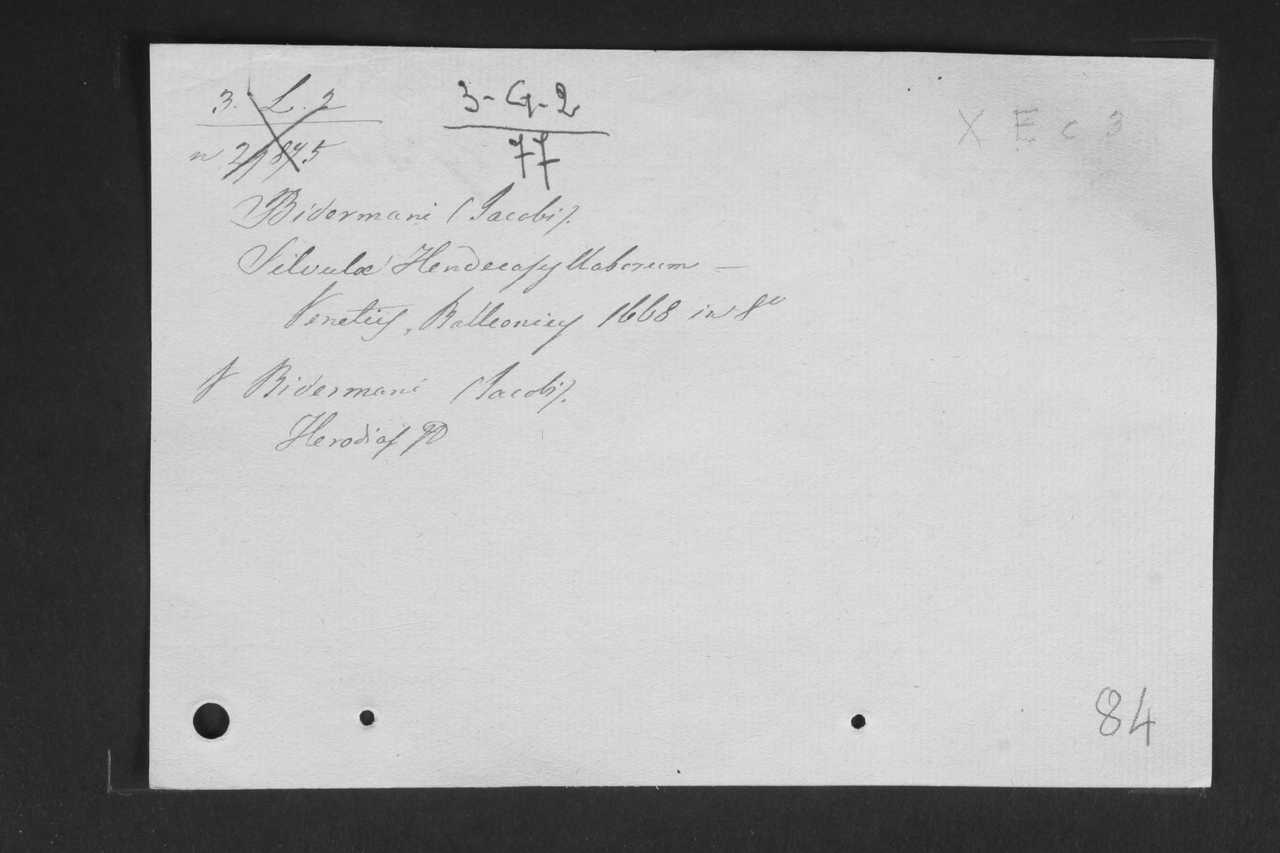 3. L. 2
3-G-2
X E c 3
77
Bidermani (Jacobi).
Silvulæ Hendecasyllaborum –
Venetiis, Balleonios 1668 in 8º
Bidermani (Jacobi).
Herodias
84